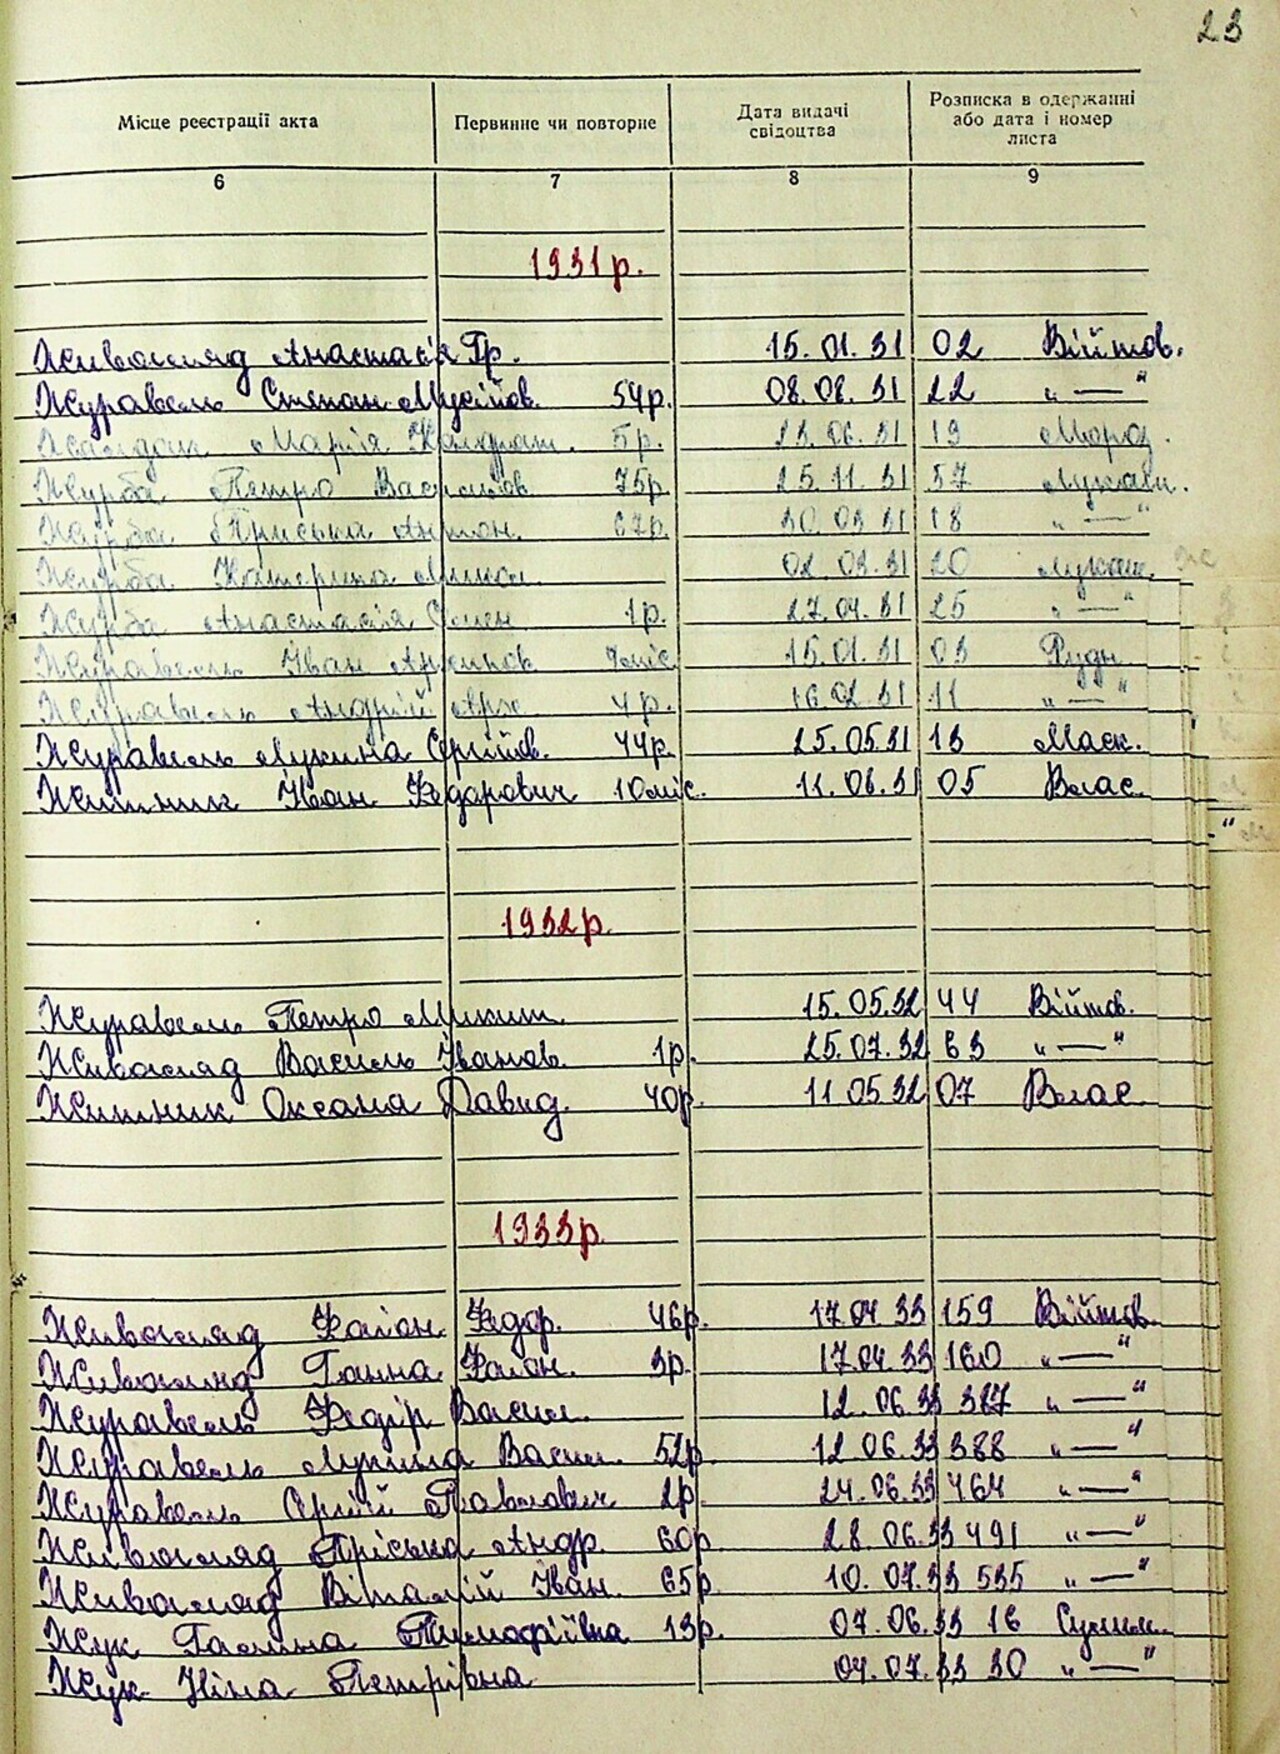 23
Місце реєстрації акта Первинне чи повторне Дата видачі свідоцтва Розписка в одержанні або дата і номер листа
6 7 8 9
1931р.
Живогляд Анастасія Гр. 15.01.31 02 Війтов.
Журавель Степан Мусійов. 54р. 08.08.31 22 „—“
Марія Кондрат. 5р. 23.06.31 19 Мороз.
Журба Петро Васильов. 75р. 25.11.31 57 Лукаш.
Журба Пріська Антон. 67р. 30.03.31 18 „—“
Журба Катерина Микол. 02.03.31 20 Лукаш.
Журба Анастасія Семен. 1р. 27.04.31 25 „—“
Журавель Іван 15.01.31 03 Рудн.
Журавель Андрій 4р. 16.02.31 11 „—“
Журавель Лукина Сергіїв. 44р. 25.05.31 13 Маск.
Житник Іван Федорович 10міс. 11.06.31 05 Влас.
1932р.
Журавель Петро Микит. 15.05.32 44 Війтов.
Живогляд Василь Іванов. 1р. 25.07.32 63 „—“
Житник Оксана Давид. 40р. 11.05.32 07 Влас.
1933р.
Живогляд Федор. 46р. 17.04.33 159 Війтов.
Живогляд Ганна 3р. 17.04.33 160 „—“
Журавель Федір Васил. 12.06.33 387 „—“
Журавель Лукина Васил. 52р. 12.06.33 388 „—“
Журавель Сергій Павлович 2р. 24.06.33 464 „—“
Живогляд Пріська Андр. 60р. 28.06.33 491 „—“
Живогляд Віталій Іван. 65р. 10.07.33 535 „—“
Жук Галина Тимофіївна 13р. 07.06.33 16
Жук Ніна Петрівна 04.07.33 30 „—“